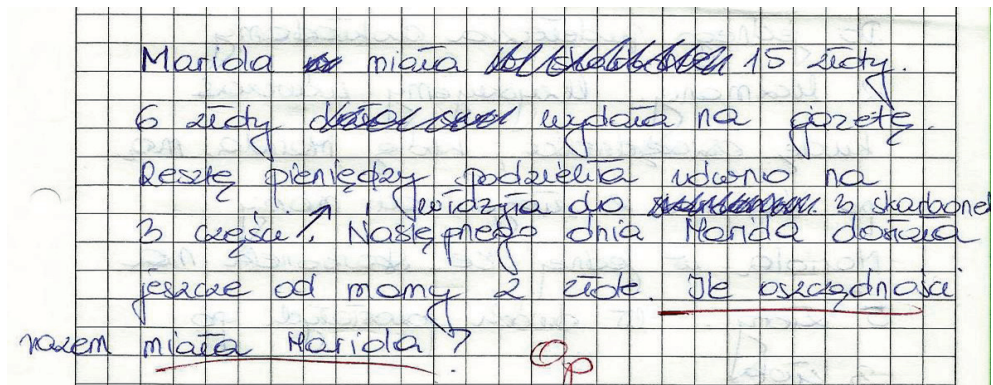 Mariola miała 15 złoty.
6 złoty wydała na gazetę.
Resztę pieniędzy podzieliła równo na
i włożyła do 3 skarbonek
3 części. Następnego dnia Mariola dostała
jeszcze od mamy 2 złote. Ile oszczędności
razem miała Mariola?
Op